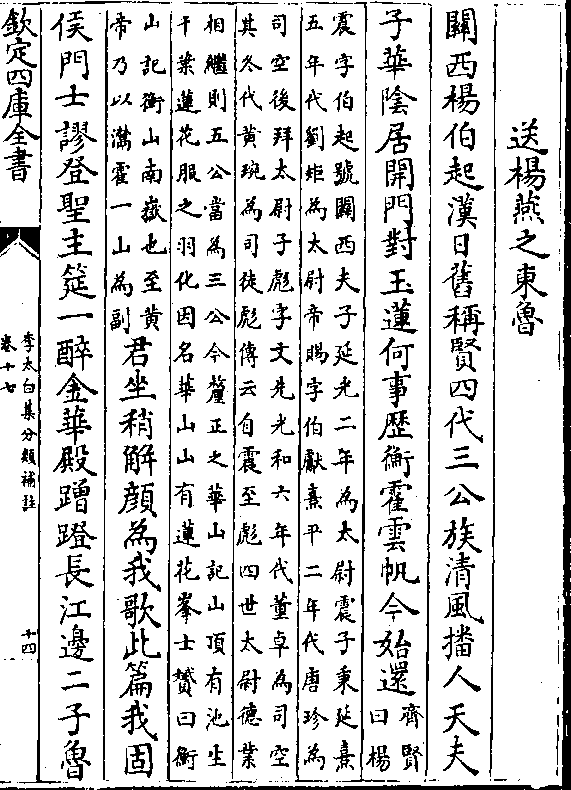 送楊燕之東魯
關西楊伯起漢日舊稱賢四代三公族清風播人天夫
子華陰居開門對玉蓮何事歴衡霍雲帆今始還齊賢
曰楊
震字伯起號關西夫子延光二年為太尉震子秉延熹
五年代劉矩為太尉帝賜字伯獻熹平二年代唐珍為
司空後拜太尉子彪字文先光和六年代董卓為司空
其冬代黄琬為司徒彪傳云自震至彪四世太尉德業
相繼則五公當為三公今釐正之華山記山頂有池生
千葉蓮花服之羽化因名華山山有蓮花峯士贇曰衡
山記衡山南嶽也至黄
帝乃以灊霍一山為副
君坐稍解顔為我歌此篇我固
侯門士謬登聖主筵一醉金華殿蹭蹬長江邊二子魯
欽定四庫全書
李太白集分類補註
卷十七
十四